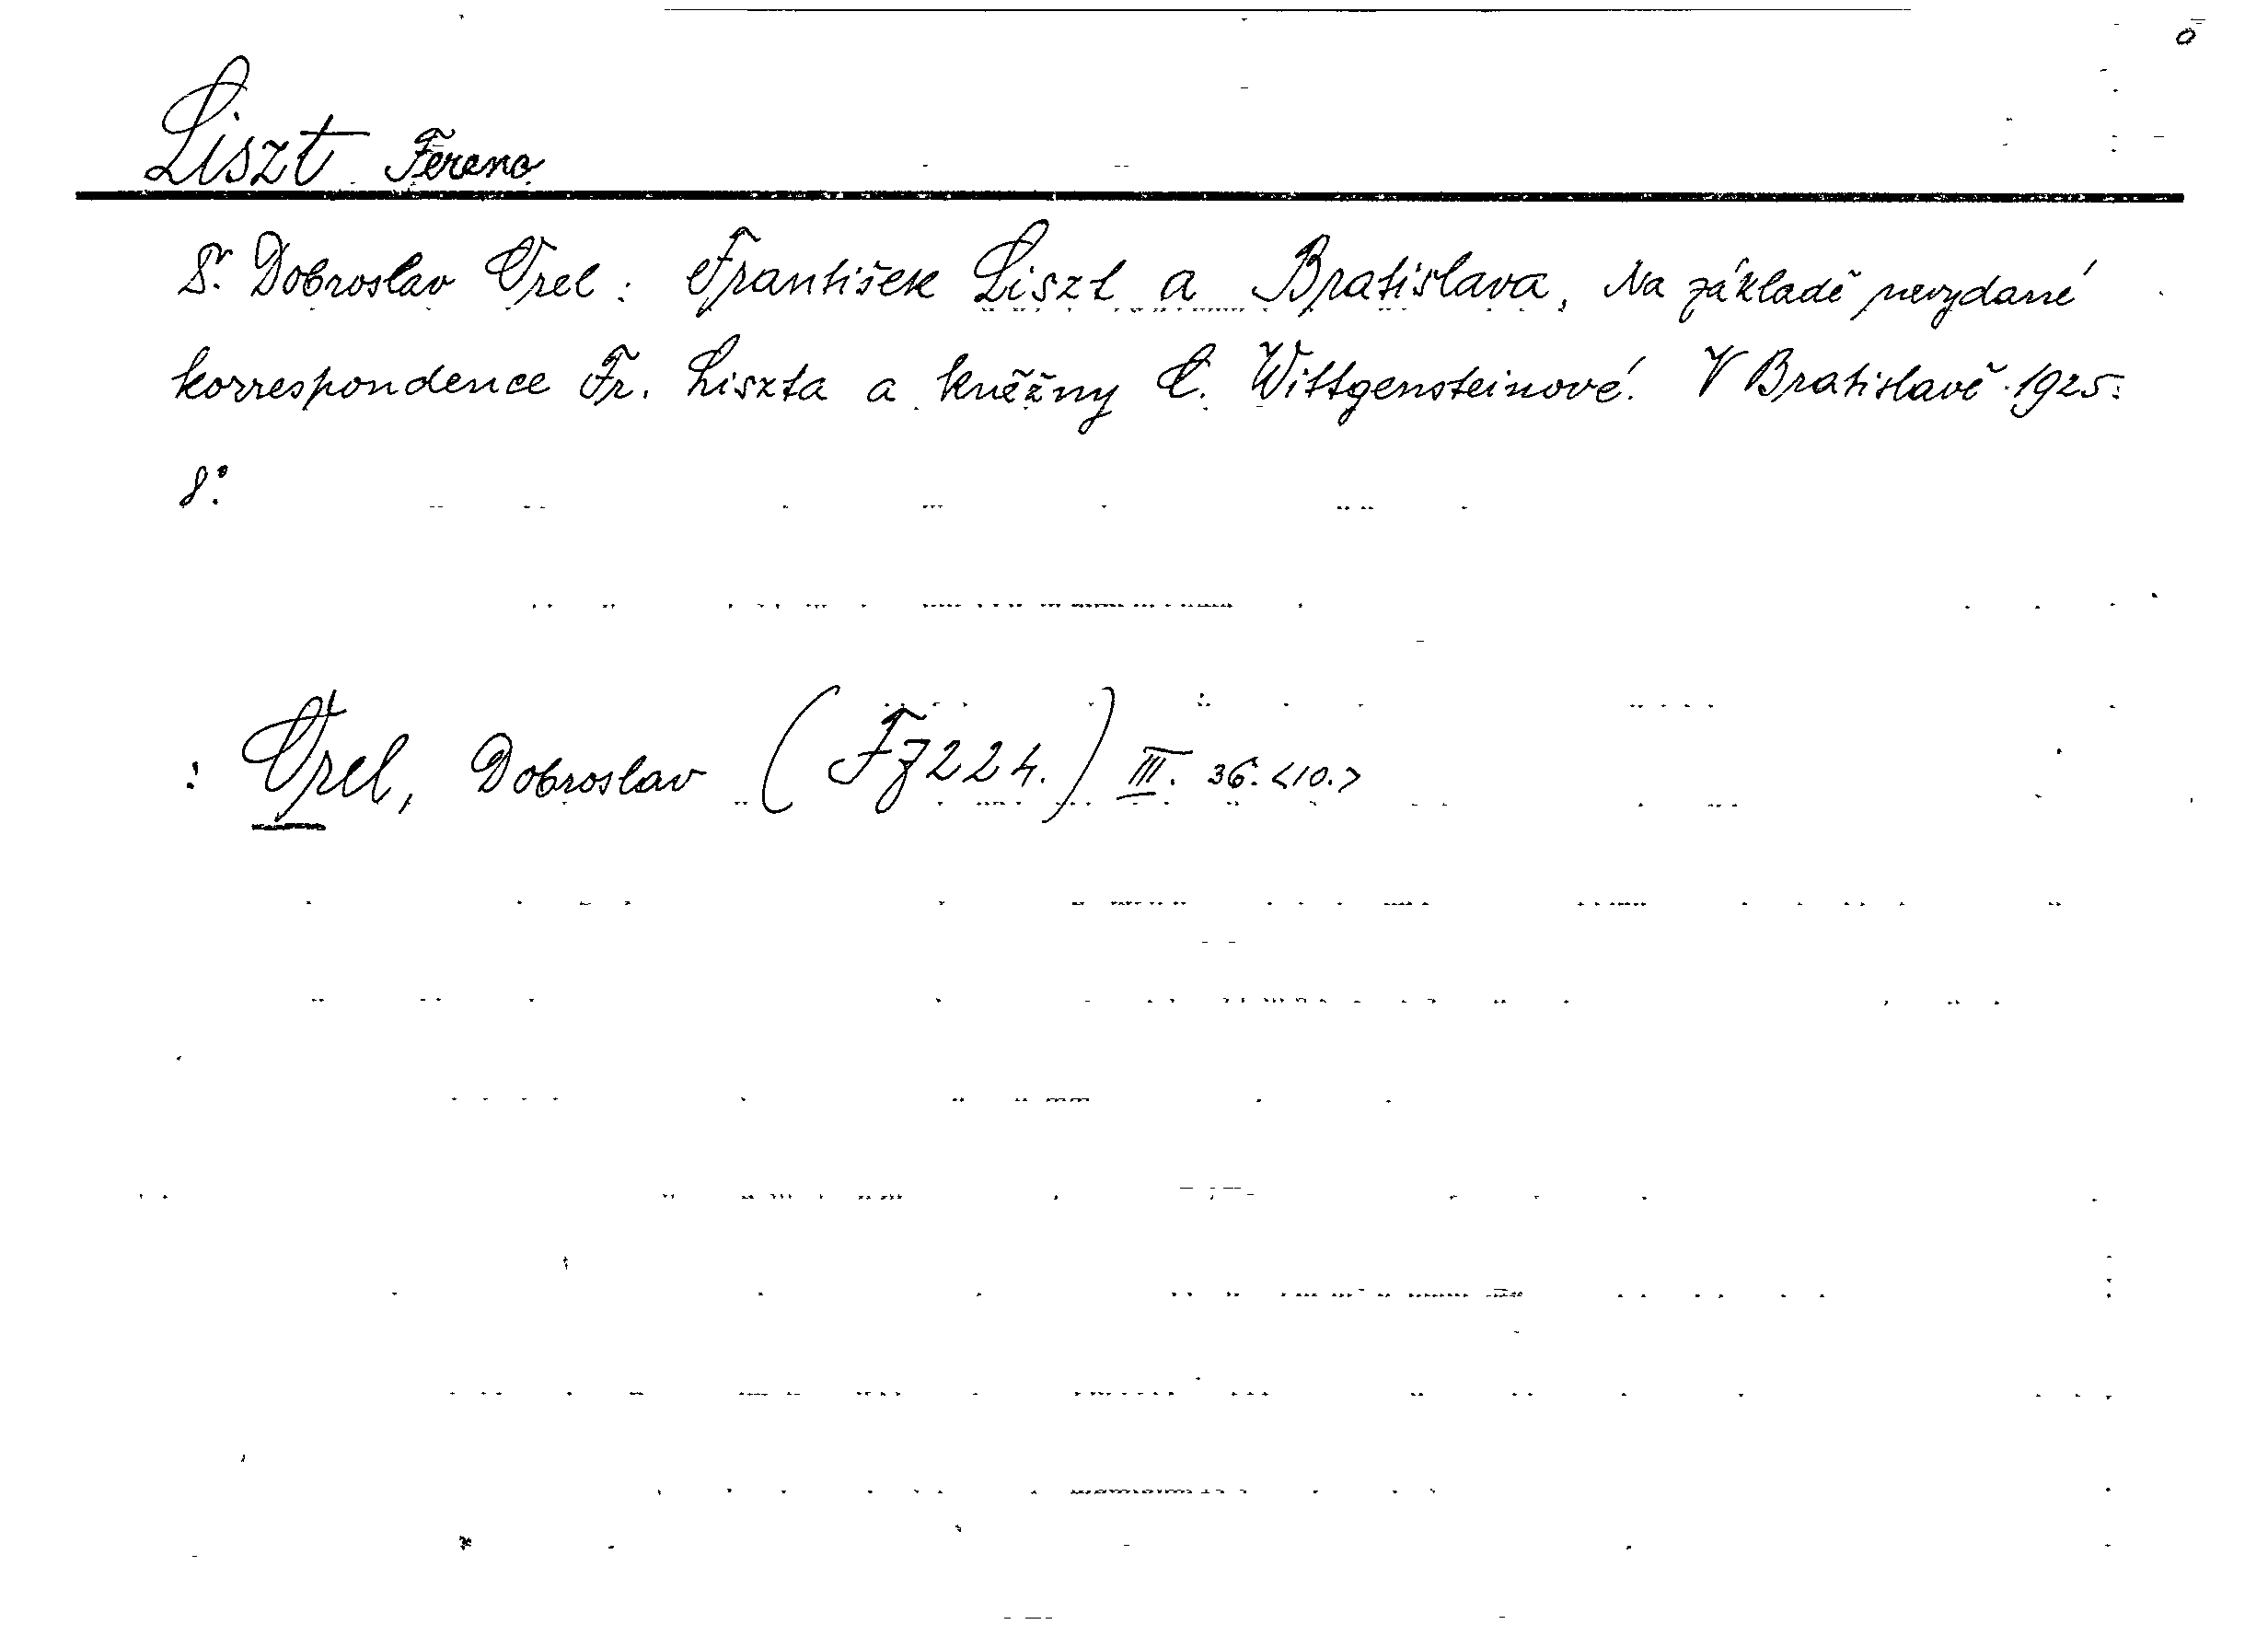 Liszt Ferenc
Dr. Dobroslav Orel: František Liszt a Bratislava, Na základě nevydané
korrespondence Fr. Liszta a kněžny C. Wittgensteinové. V Bratislavě 1925.
8°.
: Orel, Dobroslav (FZ224.) III. 36. <10.>